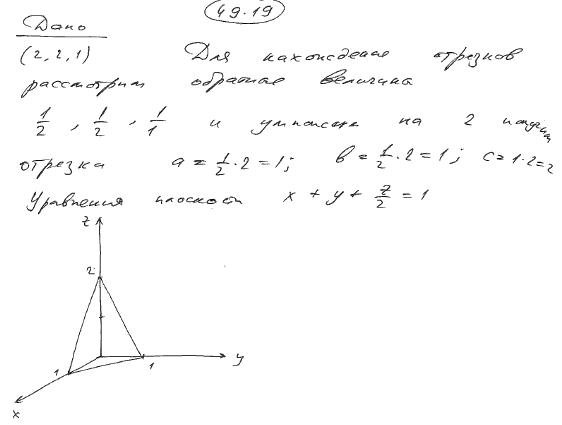 49.19
Дано
(2, 2, 1) Для нахождения отрезков
рассмотрим обратная величина
1/2 , 1/2 , 1/1 и умножим на 2
отрезка a = 1/2 · 2 = 1; b = 1/2 · 2 = 1; c = 1 · 2 = 2
Уравнения плоскости x + y + z/2 = 1
z
2
1
1
y
x